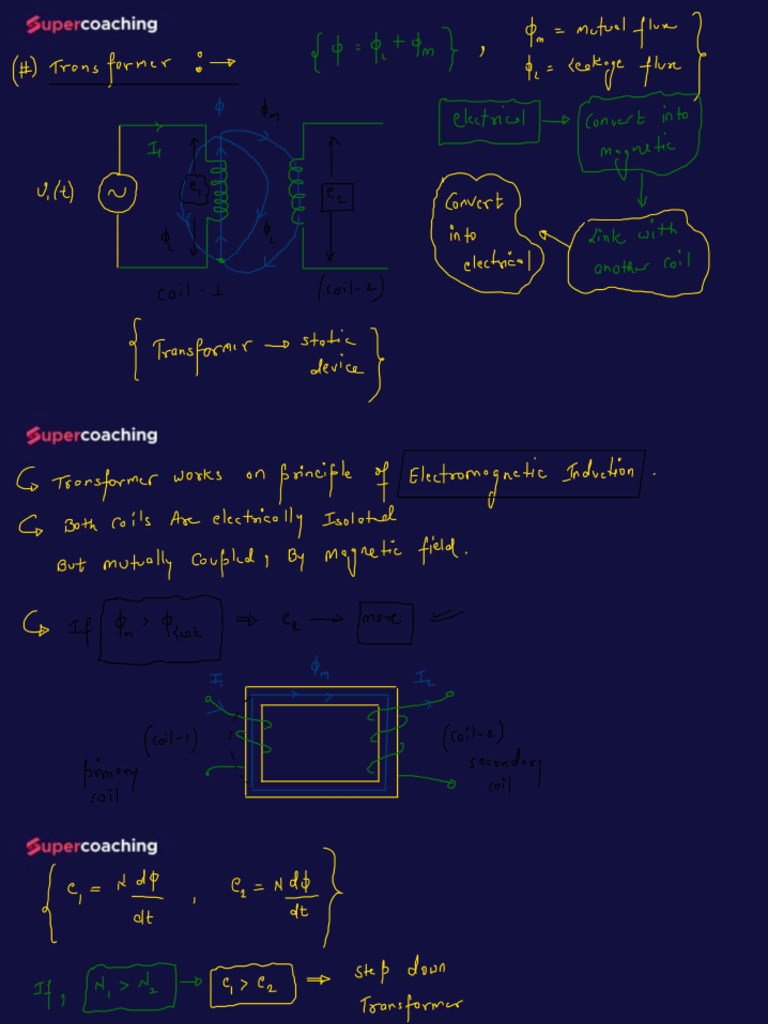 Supercoaching
(#) Transformer :→
{ ϕ = ϕL + ϕm } , ϕm = mutual flux
ϕL = Leakage flux
electrical → Convert into magnetic
Link with another coil
Convert into electrical
ϕ ϕm
I1
v1(t) ~ e1 e2
ϕL ϕL
coil-1 (coil-2)
{ Transformer → static
device }
Supercoaching
↪ Transformer works on principle of Electromagnetic Induction .
↪ Both coils Are electrically Isolated
But mutually Coupled, By Magnetic field.
↪ If ϕm > ϕleak ⇒ e2 → more
I1 ϕm I2
(coil-1) (coil-2)
primary secondary
coil coil
Supercoaching
{ e1 = N dϕ/dt , e2 = N dϕ/dt }
If, N1 > N2 → e1 > e2 ⇒ step down
Transformer